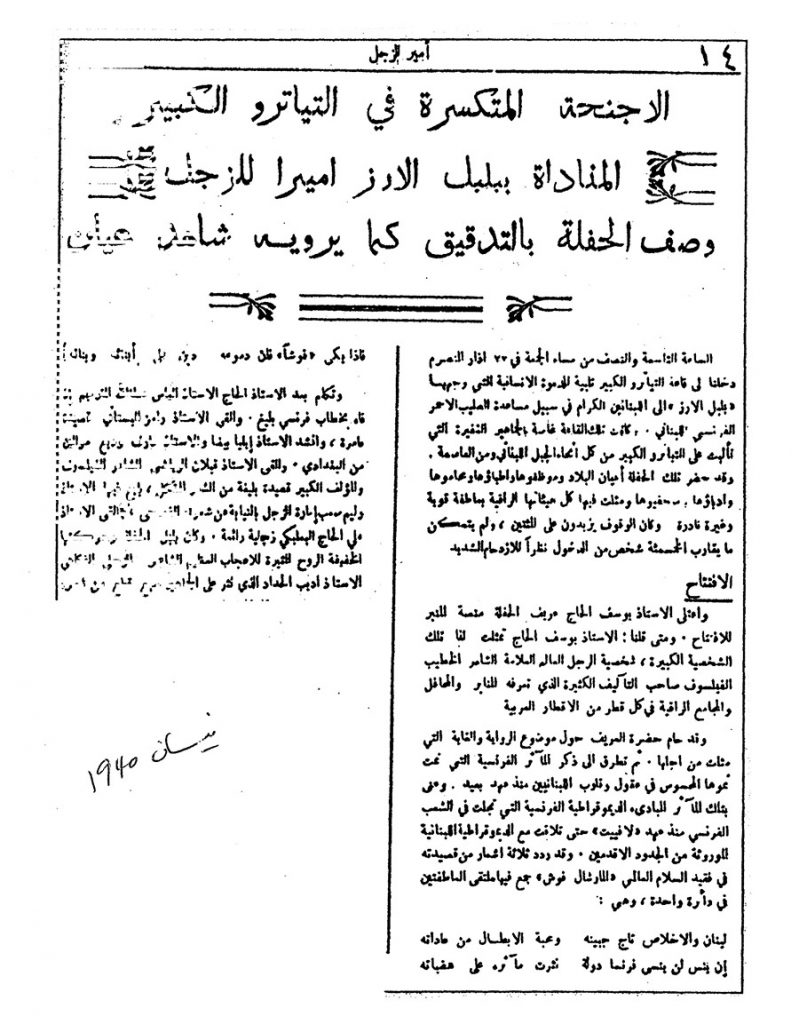 ١٤
أمير الزجل
الاجنحة المتكسرة في التياترو الكبير
المناداة ببلبل الارز اميرا للزجل
وصف الحفلة بالتدقيق كما يرويه شاهد عيان
الساعة التاسعة والنصف من مساء الجمعة في ٢٢ اذار المنصرم
دخلنا الى قاعة التياترو الكبير تلبية للدعوة الانسانية التي وجهها
«بلبل الارز» الى اللبنانيين الكرام في سبيل مساعدة الصليب الاحمر
الفرنسي اللبناني . وكانت تلك القاعة غاصة بالجماهير الغفيرة التي
تألبت على التياترو الكبير من كل أنحاء الجبل اللبناني ومن العاصمة .
وقد حضر تلك الحفلة أعيان البلاد وموظفوها واطباؤها ومحاموها
وادباؤها ، صحفيوها ومثلت فيها كل هيئاتها الراقية بعاطفة قوية
وغيرة نادرة وكان الوقوف يزيدون على المئتين ، ولم يتمكن
ما يقارب الخمسمئة شخص من الدخول نظراً للازدحام الشديد
الافتتاح
واعتلى الاستاذ يوسف الحاج عريف الحفلة منصة المنبر
للافتتاح . ومتى قلنا : الاستاذ يوسف الحاج تمثلت لنا تلك
الشخصية الكبيرة ، شخصية الرجل العالم العلامة الشاعر الخطيب
الفيلسوف صاحب التآليف الكثيرة الذي تعرفه المنابر والمحافل
والمجامع الراقية في كل قطر من الاقطار العربية
وقد حام حضرة العريف حول موضوع الرواية والغاية التي
مثلت من اجلها . ثم تطرق الى ذكر المآثر الفرنسية التي نمت
نموها المحسوس في عقول وقلوب اللبنانيين منذ عهد بعيد . وعنى
بتلك المآثر المبادىء الديموقراطية الفرنسية التي تجلت في الشعب
الفرنسي منذ عهد «لافييت» حتى تلاقت مع الديموقراطية اللبنانية
الموروثة من الجدود الاقدمين . وقد ردد ثلاثة اشعار من قصيدته
في فقيد السلام العالمي «المارشال فوش» جمع فيها ملتقى العاطفتين
في دائرة واحدة ، وهي :
لبنان والاخلاص تاج جبينه ومحبة الابطال من عاداته
إن ينس لن ينسى فرنسا دولة نثرت مآثره على هضباته
فاذا بكى «فوشاً» فان دموعه
وتكلم بعد الاستاذ الحاج الاستاذ الياس
فاه بخطاب فرنسي بليغ . والقى الاستاذ رامز البستاني قصيدة
عامرة ، وانشد الاستاذ إيليا بيضا والاستاذ
من البغدادي . والقى الاستاذ قبلان الرياشي الشاعر الفيلسوف
والمؤلف الكبير قصيدة بليغة من الشعر
وليم صعب إمارة الزجل بالنيابة عن شعراء
علي الحاج البعلبكي زجلية رائعة . وكان بلبل الحفلة
الخفيفة الروح المثيرة للاعجاب
الاستاذ أديب الحداد الذي نثر على الجماهير
نيسان ١٩٤٠